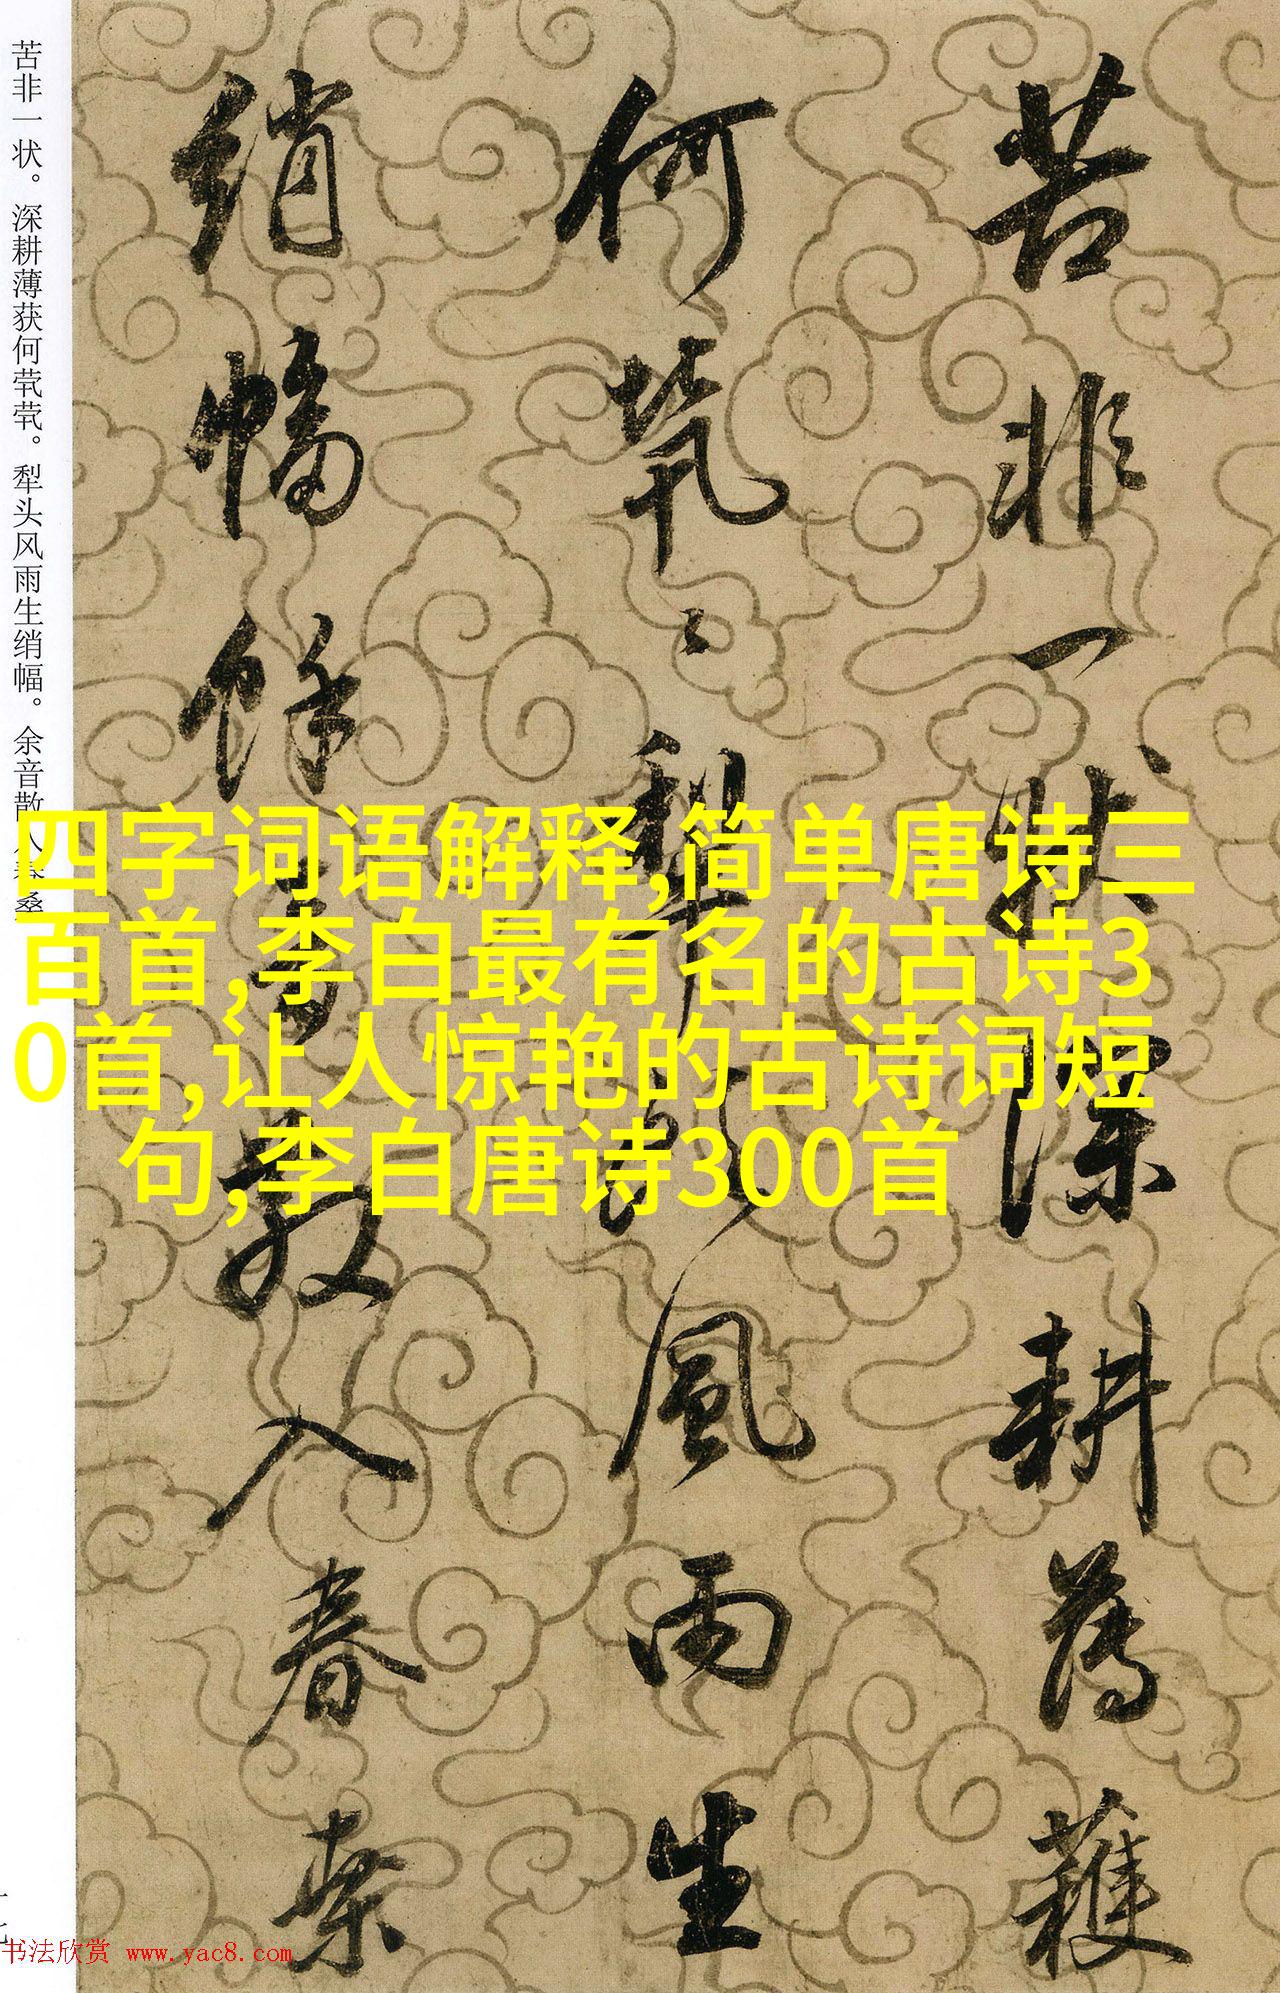 苦非一状。深耕薄获何茕茕。犁头风雨生绡幅。余音散入春桑
苦非一狀深耕薄穫
何煢々犁頭風雨生
綃幅餘音散入春桑
四字词语解释,简单唐诗三
百首,李白最有名的古诗3
0首,让人惊艳的古诗词短
句,李白唐诗300首
十七
书法欣赏 www.yac8.com